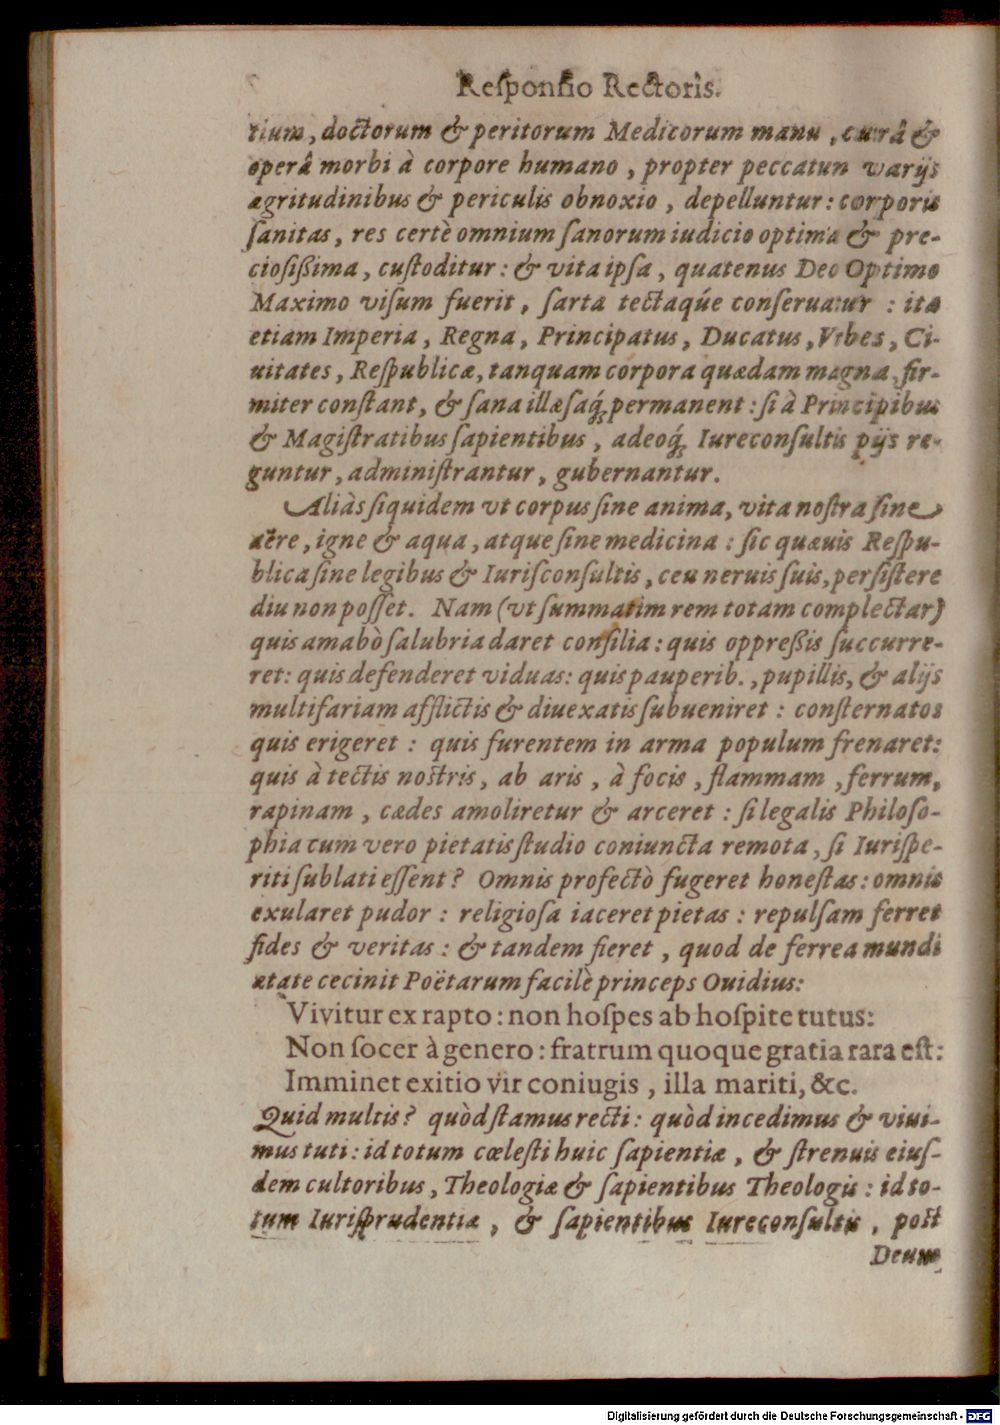 Reſponſio Rectoris.
tium, doctorum & peritorum Medicorum manu, curâ &
operâ morbi à corpore humano, propter peccatun varijs
ægritudinibus & periculis obnoxio, depelluntur: corporis
ſanitas, res certè omnium ſanorum iudicio optima & pre-
cioſißima, cuſtoditur: & vita ipſa, quatenus Deo Optimo
Maximo viſum fuerit, ſarta tectaqúe conſeruatur: ita
etiam Imperia, Regna, Principatus, Ducatus, Vrbes, Ci-
uitates, Reſpublicæ, tanquam corpora quædam magna, fir-
miter conſtant, & ſana illæſaq́; permanent: ſi à Principibus
& Magiſtratibus ſapientibus, adeoq́; Iureconſultis pijs re-
guntur, adminiſtrantur, gubernantur.
Aliàs ſiquidem vt corpus ſine anima, vita noſtra ſine
aëre, igne & aqua, atque ſine medicina: ſic quæuis Reſpu-
blica ſine legibus & Iuriſconſultis, ceu neruis ſuis, perſiſtere
diu non poſſet. Nam (vt ſummatim rem totam complectar)
quis amabò ſalubria daret conſilia: quis oppreßis ſuccurre-
ret: quis defenderet viduas: quis pauperib., pupillis, & alijs
multifariam afflictis & diuexatis ſubueniret: conſternatos
quis erigeret: quis furentem in arma populum frenaret:
quis à tectis noſtris, ab aris, à focis, flammam, ferrum,
rapinam, cædes amoliretur & arceret: ſi legalis Philoſo-
phia cum vero pietatis ſtudio coniuncta remota, ſi Iuriſpe-
riti ſublati eſſent? Omnis profectò fugeret honeſtas: omnis
exularet pudor: religioſa iaceret pietas: repulſam ferret
fides & veritas: & tandem fieret, quod de ferrea mundi
ætate cecinit Poëtarum facilè princeps Ouidius:
Vivitur ex rapto: non hoſpes ab hoſpite tutus:
Non ſocer à genero: fratrum quoque gratia rara eſt:
Imminet exitio vir coniugis, illa mariti, &c.
Quid multis? quòd ſtamus recti: quòd incedimus & viui-
mus tuti: id totum cœleſti huic ſapientiæ, & ſtrenuis eiuſ-
dem cultoribus, Theologiæ & ſapientibus Theologis: id to-
tum Iuriſprudentiæ, & ſapientibus Iureconſultis, poſt
Deum
Digitalisierung gefördert durch die Deutsche Forschungsgemeinschaft - DFG